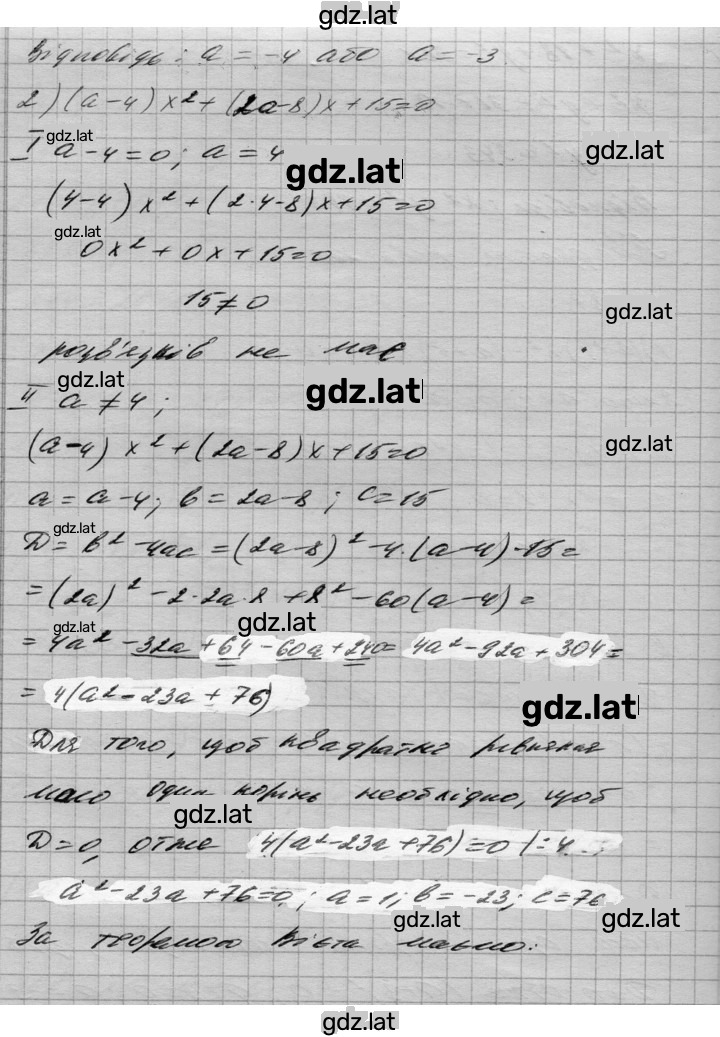 gdz.lat
Відповідь: a = -4 або a = -3
2) (a-4)x² + (2a-8)x + 15 = 0
gdz.lat
I a-4=0; a=4
gdz.lat
gdz.lat
(4-4)x² + (2·4-8)x + 15 = 0
gdz.lat
0x² + 0x + 15 = 0
15 ≠ 0
gdz.lat
розв'язків не має
gdz.lat
gdz.lat
II a ≠ 4;
gdz.lat
(a-4)x² + (2a-8)x + 15 = 0
a = a-4; b = 2a-8; c = 15
gdz.lat
D = b² - 4ac = (2a-8)² - 4·(a-4)·15 =
= (2a)² - 2·2a·8 + 8² - 60(a-4) =
gdz.lat
gdz.lat
= 4a² - 32a + 64 - 60a + 240 = 4a² - 92a + 304 =
= 4(a² - 23a + 76)
gdz.lat
Для того, щоб квадратне рівняння
мало один корінь необхідно, щоб
gdz.lat
D = 0, отже 4(a² - 23a + 76) = 0 /:4
a² - 23a + 76 = 0; a = 1; b = -23; c = 76
gdz.lat
gdz.lat
За теоремою Вієта маємо:
gdz.lat